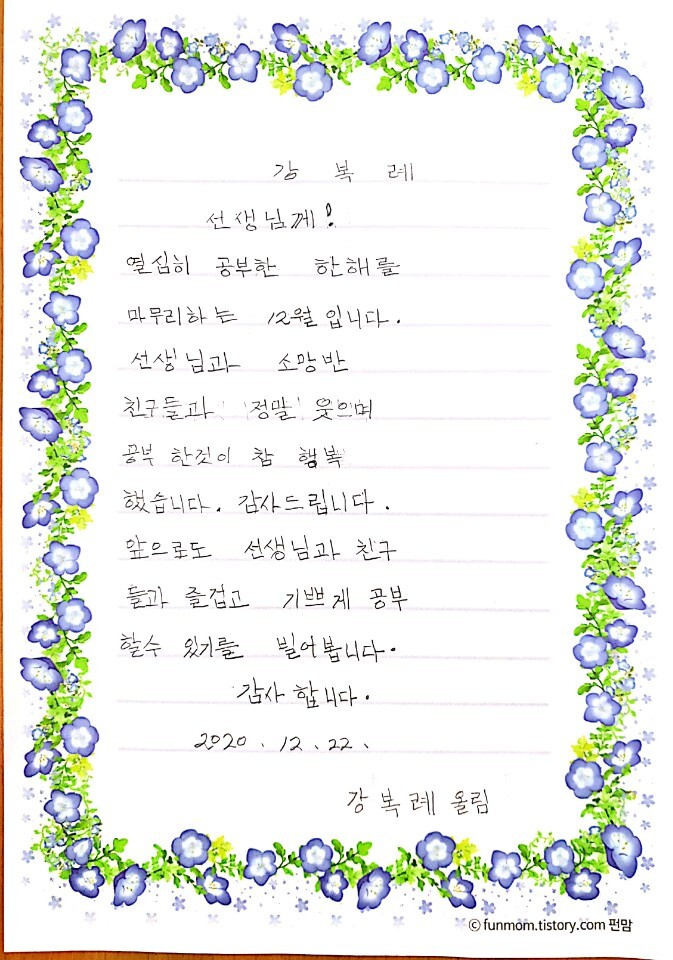 강 복 례
선생님께!
열심히 공부한 한해를
마무리하는 12월 입니다.
선생님과 소망반
친구들과 정말 웃으며
공부 한것이 참 행복
했습니다. 감사드립니다.
앞으로도 선생님과 친구
들과 즐겁고 기쁘게 공부
할수 있기를 빌어봅니다.
감사 합니다.
2020. 12. 22.
강 복 례 올림
© funmom.tistory.com 펀맘